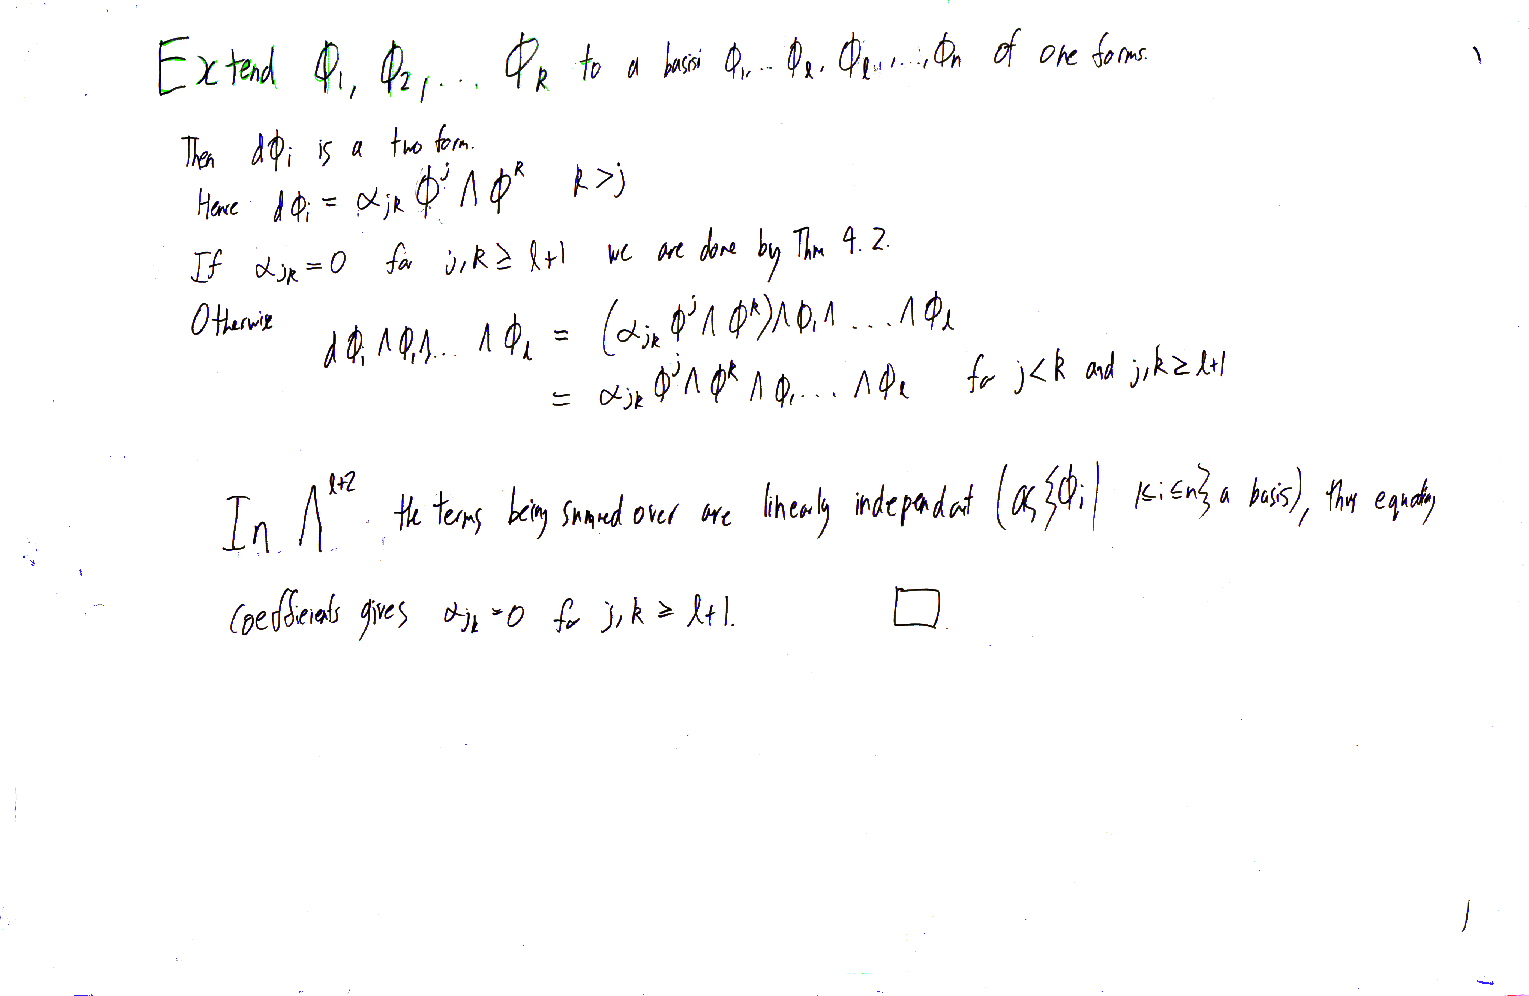 Extend Φ₁, Φ₂, ... Φk to a basisi Φ₁, ... Φℓ, Φℓ₊₁, ..., Φn of one forms.
Then dΦi is a two form.
Hence dΦi = αjk Φ^j ∧ Φ^k k > j
If αjk = 0 for j, k ≥ ℓ+1 we are done by Thm 4.2.
Otherwise dΦi ∧ Φ₁ ∧ ... ∧ Φℓ = (αjk Φ^j ∧ Φ^k) ∧ Φ₁ ∧ ... ∧ Φℓ
= αjk Φ^j ∧ Φ^k ∧ Φ₁ ... ∧ Φℓ for j < k and j, k ≥ ℓ+1
In Λ^(ℓ+2) the terms being summed over are linearly independant (as {Φi | 1 ≤ i ≤ n} a basis), thus equating
coefficients gives αjk = 0 for j, k ≥ ℓ+1. □